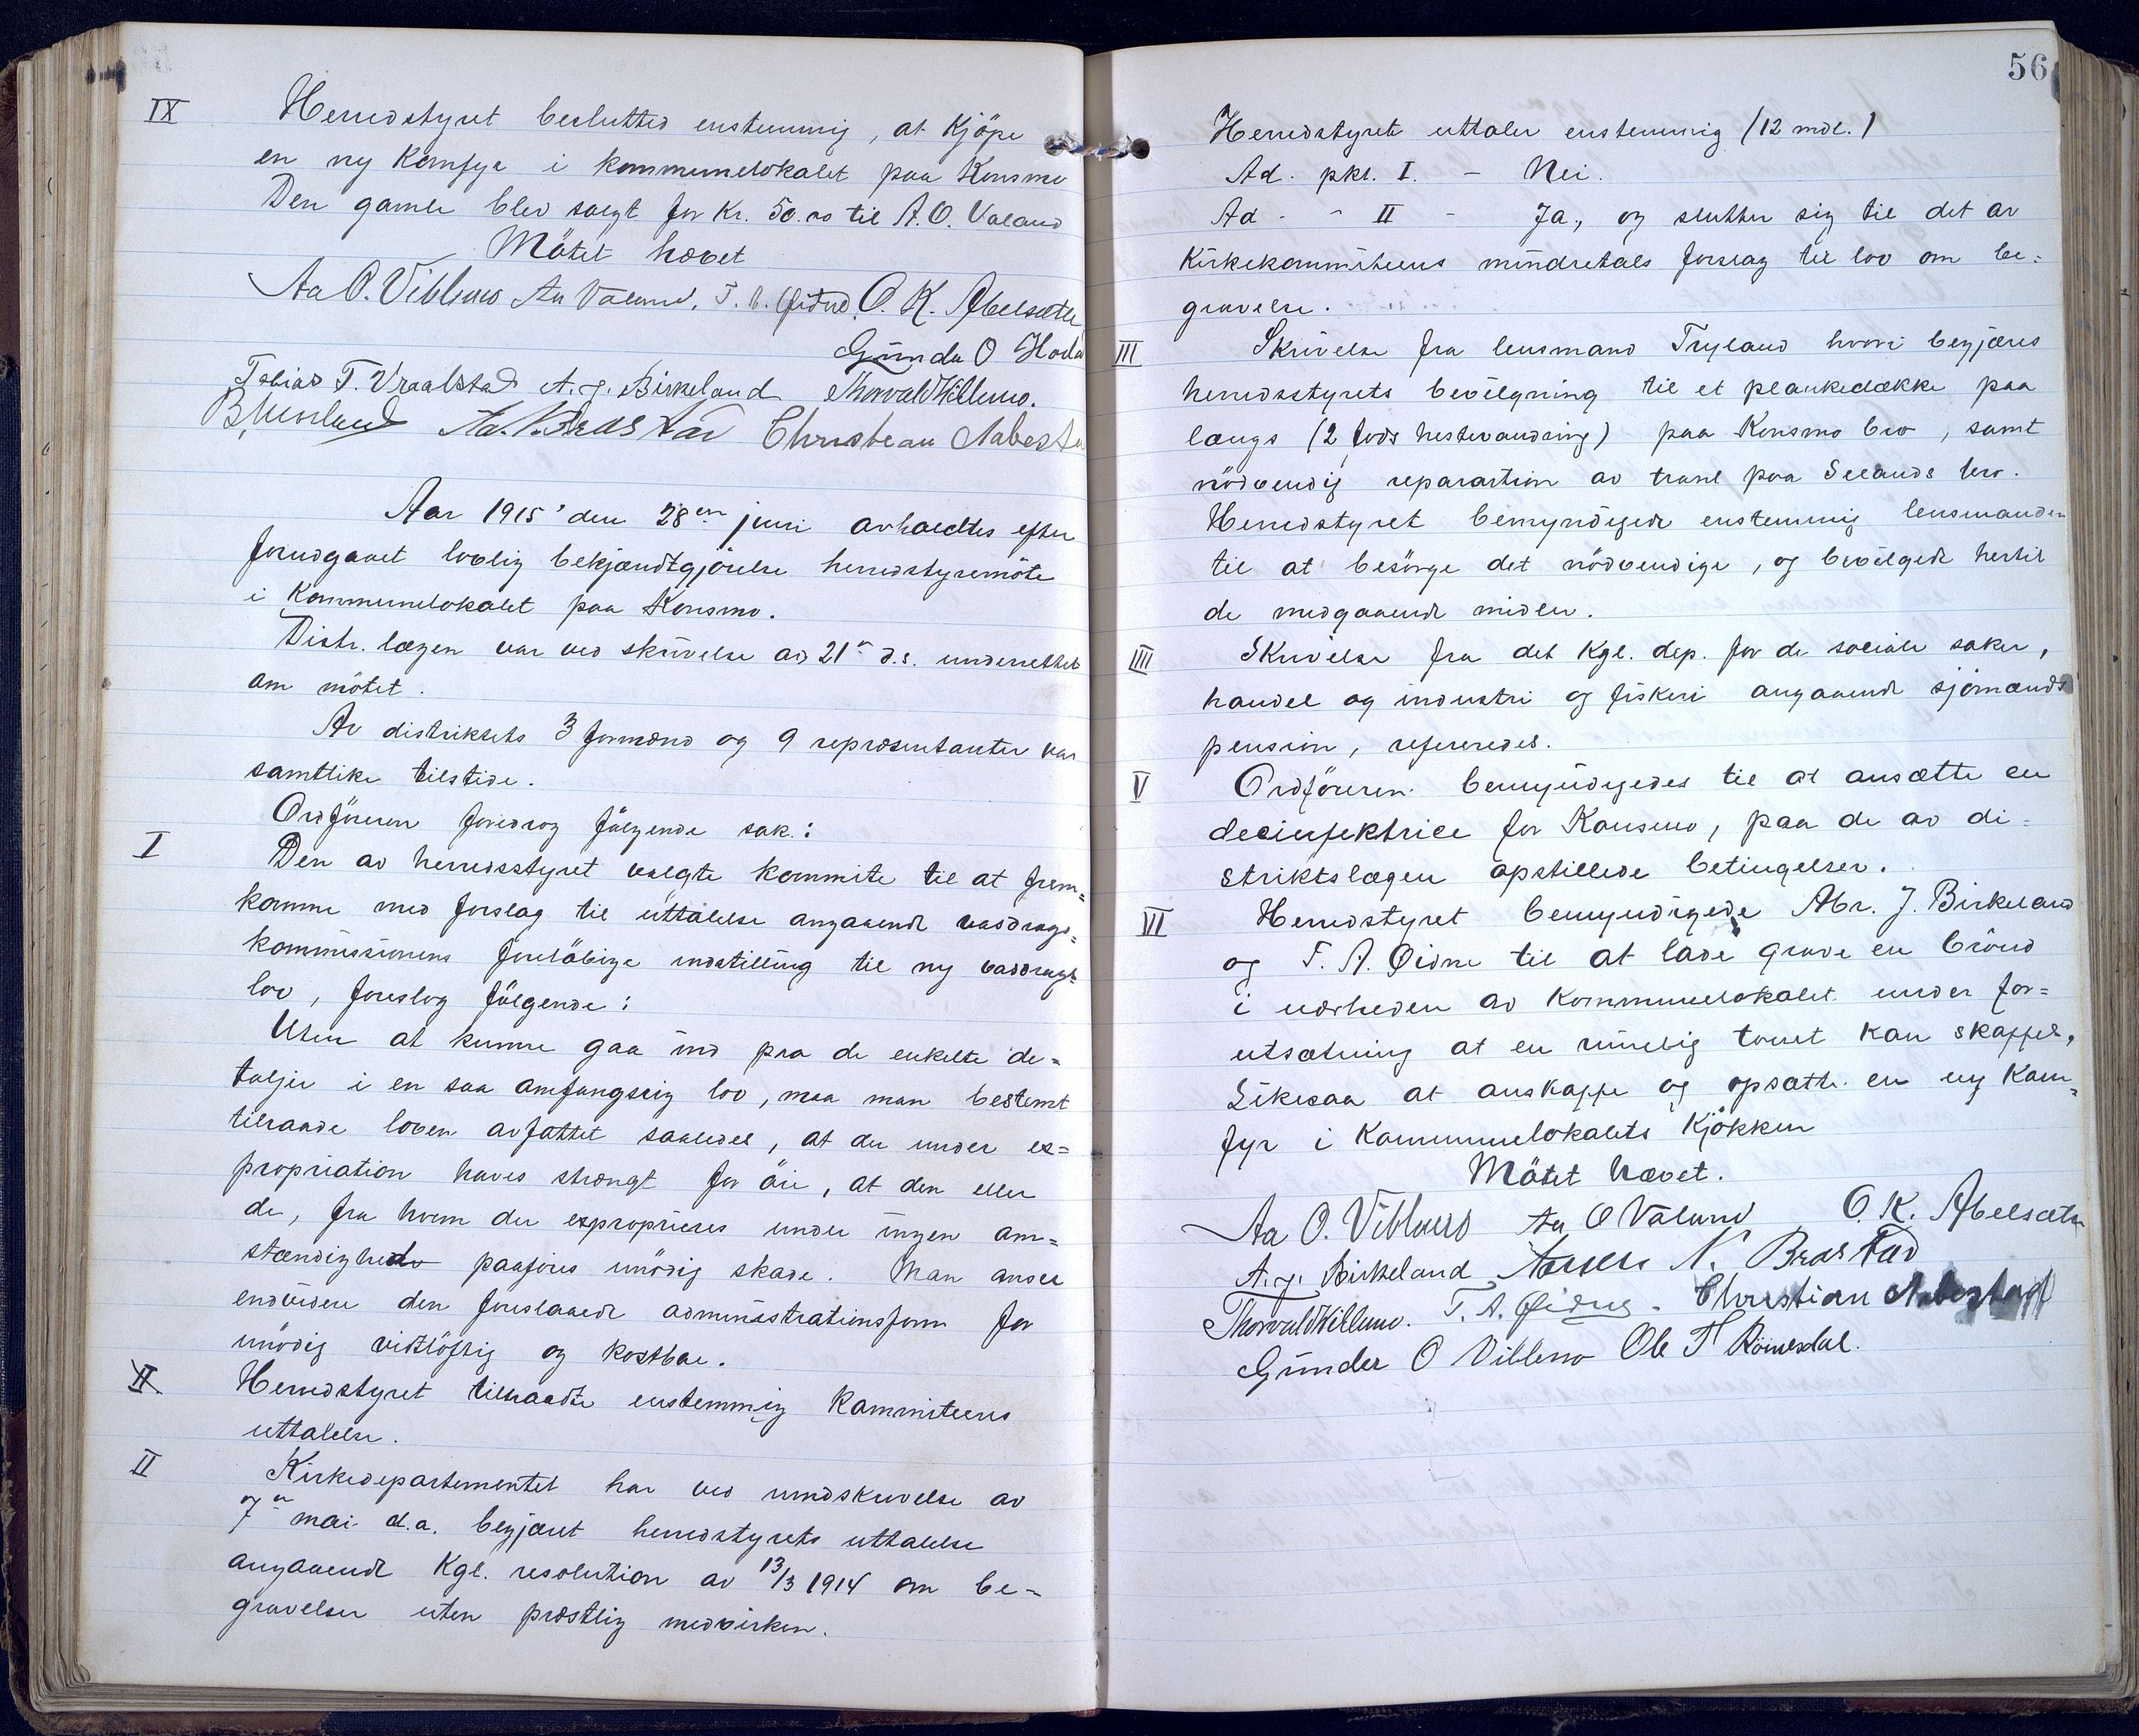 IX Herredstyret beslutted enstemmig, at kjöpe
en ny komfyr i kommunelokalet paa Konsmo
Den gamle blev solgt for Kr. 50.00 til A. O. Valand
Mötet hævet
Aa O. Vibluno Aa Valand, T. A. Öidne, O. K. Abelsæth
Gunder O
Tobias T. Vraalstad A. J. Birkeland Thorvald
Aa. N. Brastad Christian Aabestad
Aar 1915 den 28en juni avholdtes efter
forudgaaet lovlig bekjændtgjörelse herredstyremöte
i Kommunelokalet paa Konsmo.
Distr. lægen var ved skrivelse av 21n d.s. underrettet
om mötet.
Av distriktets 3 formænd og 9 repræsentanter var
samtlike tilstede.
Ordföreren foredrog fölgende sak:
I Den av herredsstyret valgte kommite til at frem=
komme med forslag til uttalelse angaaende vasdrags=
kommissionens forelöbige indstilling til ny vasdrags=
lov, foreslog fölgende:
Uten at kunne gaa ind paa de enkelte de=
taljer i en saa omfangsrig lov, maa man bestemt
tilraade loven avfattet saaledes, at der under ex=
propriation haves strengt for öie, at den eller
de, fra hvem der exproprieres under ingen om=
stændigheder paaföres unödig skade. Man anser
endvidere den foreslaaede administrationsform for
unödig vidtlöftig og kostbar.
II Herredstyret tilraadte enstemmig Kommiteens
uttalelse.
II Kirkedepartementet har ved rundskrivelse av
7n mai d.a. begjæret herredstyrets uttalelse
angaaende Kgl. resolution av 13/3 1914 om be=
gravelser uten prestlig medvirken.
56
Herredstyret uttaler enstemmig (12 mdl.)
Ad. pkt. I. - Nei.
Ad - - II - Ja, og slutter sig til det av
Kirkekommiteens mindretals forslag til lov om be=
gravelse.
III Skrivelse fra lensmand Tryland hvori begjæres
herredsstyrets bevilgning til et plankedække paa
langs (2 fods hestevandring) paa Konsmo bro, samt
nödvendig reparartion av traxe paa Seelands bro.
Herredstyret bemyndigede enstemmig lensmanden
til at besörge det nödvendige, og bevilgede hertil
de medgaaende midler.
IIII Skrivelse fra det Kgl. dep. for de sociale saker,
handel og industri og fiskeri angaaende sjömænds
pension, refereredes.
V Ordföreren bemyndigedes til at ansætte en
decinfektrice for Konsmo, paa de av di=
striktslægen opstillede betingelser.
VI Herredstyret bemyndigede Abr. J. Birkeland
og T. A. Öidne til at lade grave en brönd
i nærheden av kommunelokalet under for=
utsætning at en rimelig tomt kan skaffes,
Likesaa at anskaffe og opsætte en ny Kom=
fyr i Kommunelokalets Kjökken
Mötet hævet.
Aa O. Vibluno Aa O Valand O. K. Abelsæth
A. J. Birkeland Aanen N. Brastad
Thorvald T. A. Öidne. Christian Aabestad
Gunder O Vibluno Ole T Römesdal.